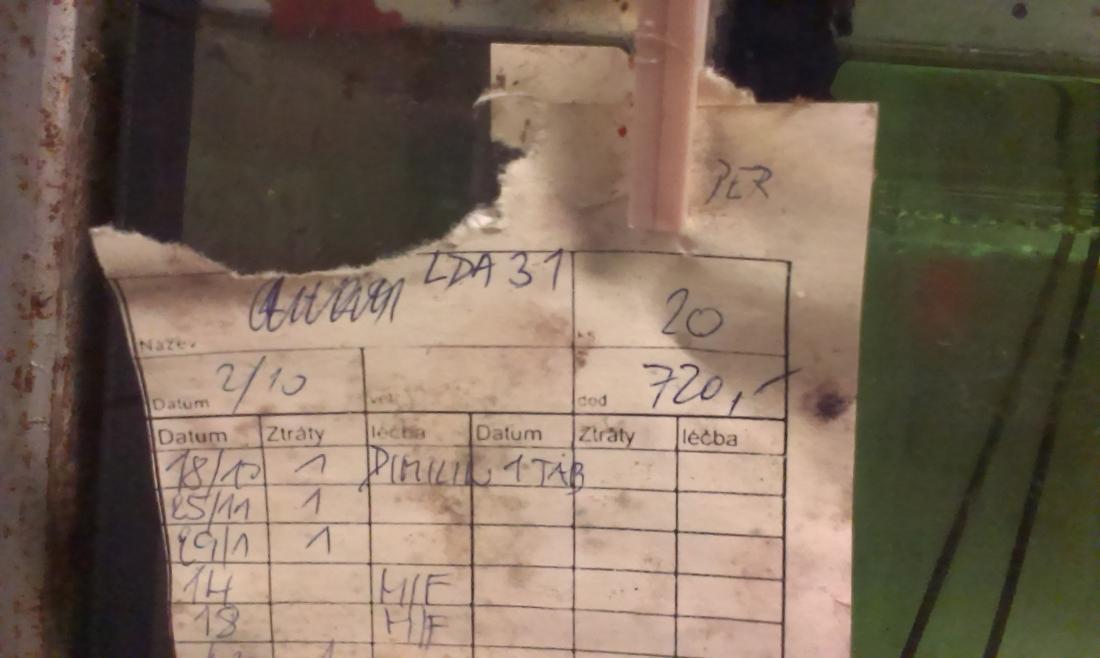 PER
LDA 31
20
Název ks
2/10 720,-
Datum vel. cod
Datum Ztráty léčba Datum Ztráty léčba
18/10 1 DIMILIN 1 TAB
25/11 1
29/1 1
14 H/F
18 H/F